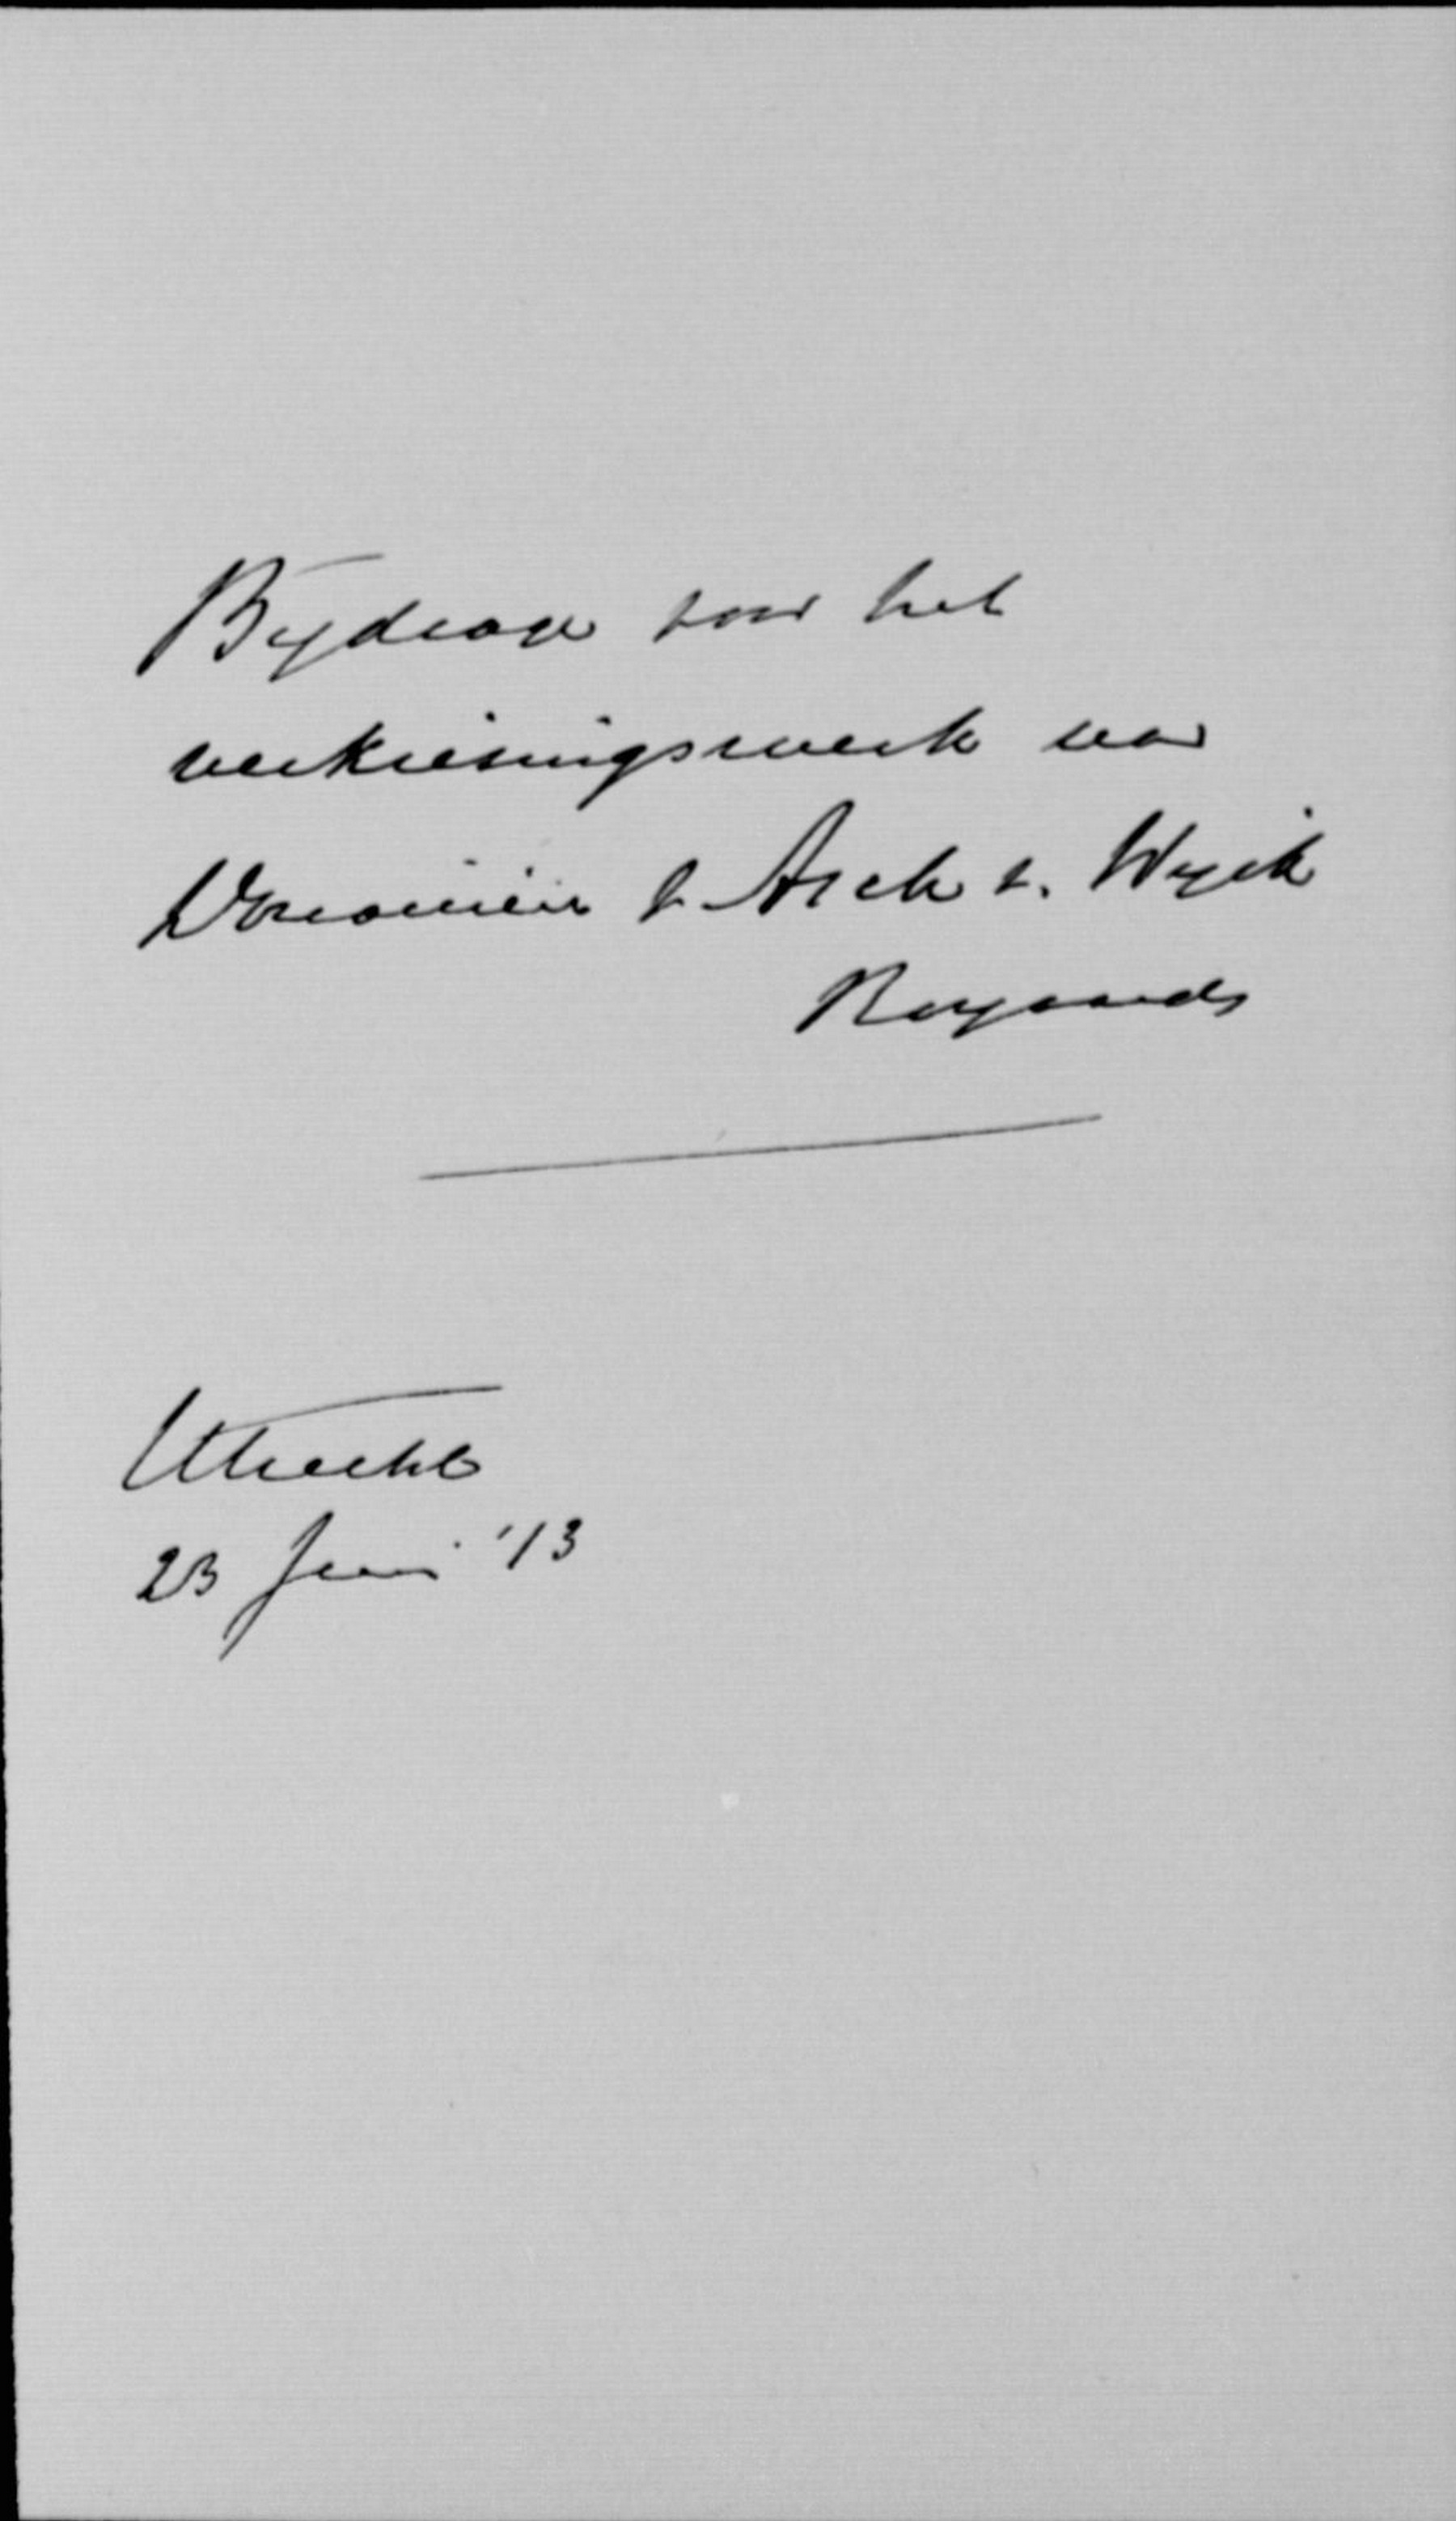 Bijdrage voor het
verkiezingswerk van
v. Asch v. Wyck
Royaards
Utrecht
23 Juni '13